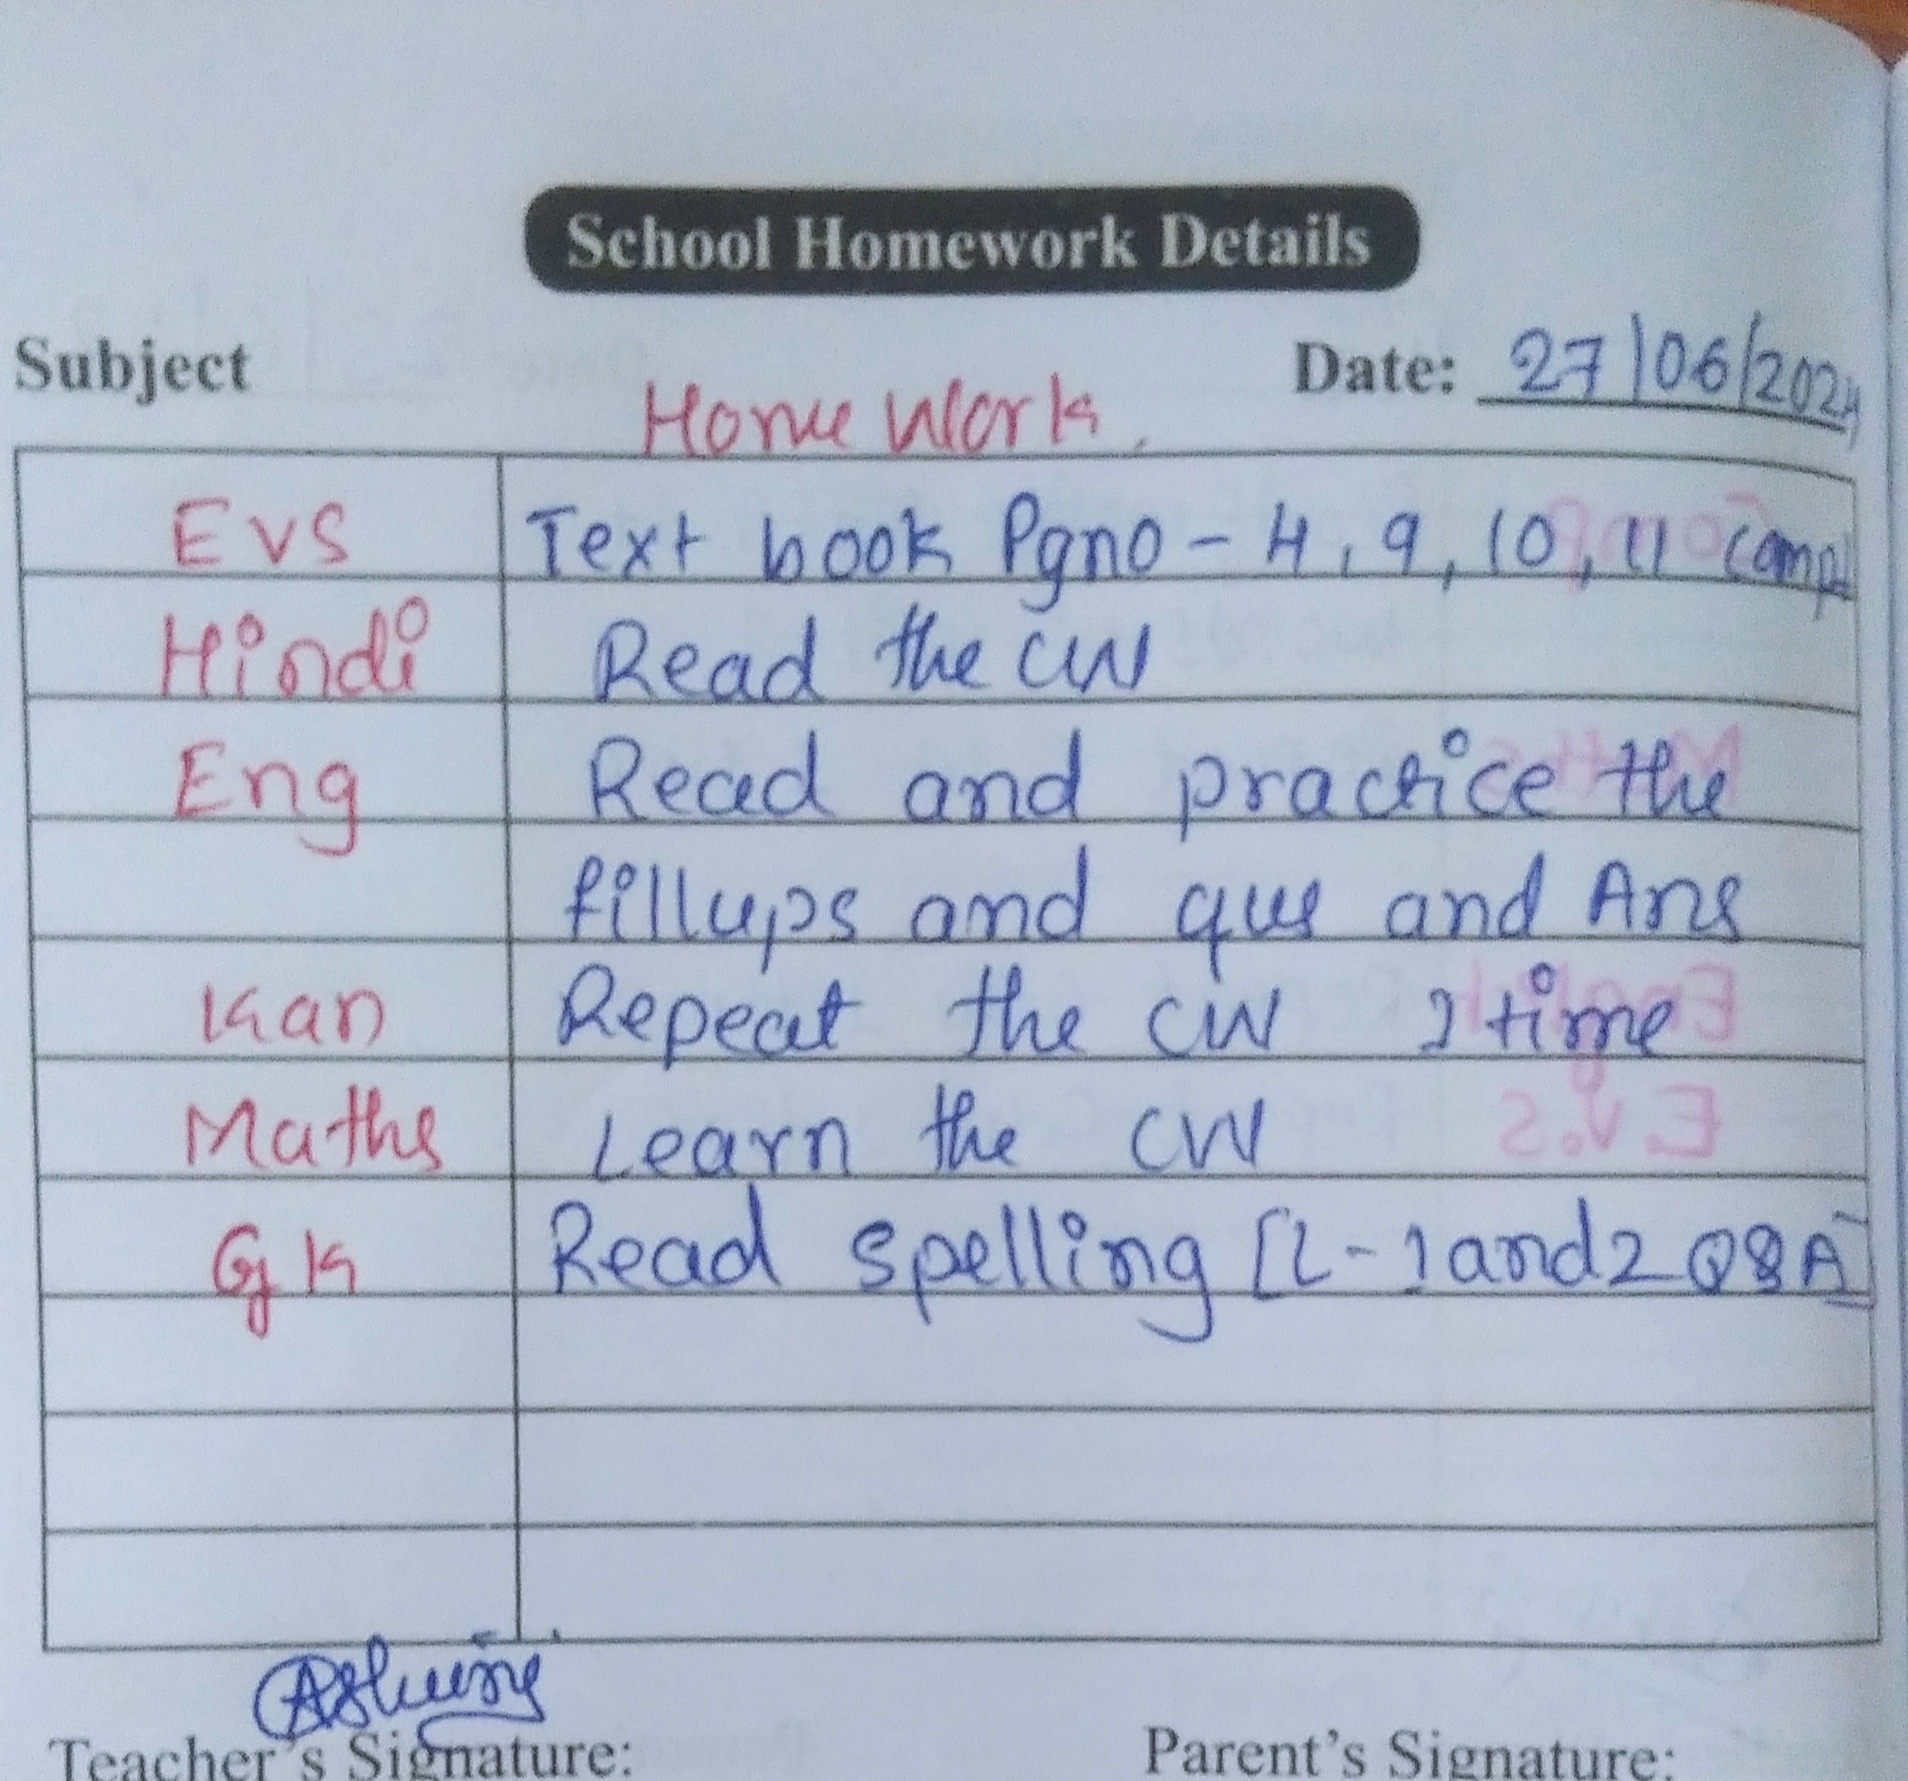 School Homework Details
Subject Date: 27/06/2024
Home Work.
EVS Text book Pgno - 4, 9, 10, 11 comp
Hindi Read the CW
Eng Read and practice the
fillups and qus and Ans
Kan Repeat the CW 1 time
Maths Learn the CW
GK Read spelling [L-1 and 2 Q&A]
Teacher's Signature: Parent's Signature: